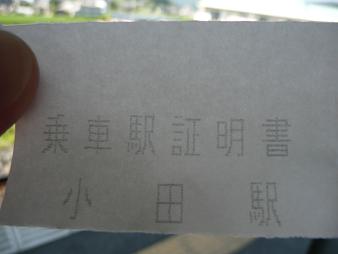 乗車駅証明書
小田駅